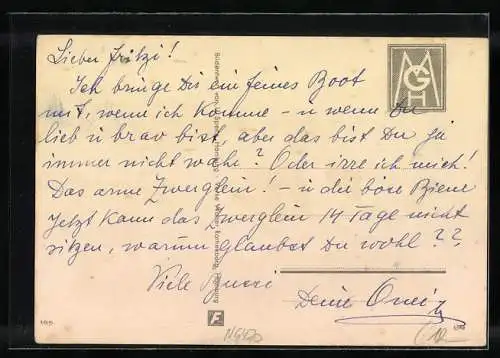 Lieber Fritzi!
Ich bringe Dir ein feines Boot
mit, wenn ich komme – u wenn Du
lieb u brav bist, aber das bist Du ja
immer nicht wahr? Oder irre ich mich!
Das arme Zwerglein! – u die böse Biene
Jetzt kann das Zwerglein 14 Tage nicht
sitzen, warum glaubst Du wohl??
Viele Bussi
Deine
MGH
F